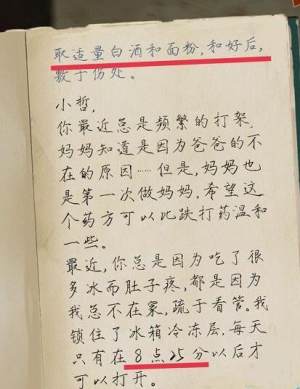 取适量白酒和面粉,和好后,
敷于伤处。
小哲,
你最近总是频繁的打架,
妈妈知道是因为爸爸的不
在的原因……但是,妈妈也
是第一次做妈妈,希望这
个药方可以比跌打药温和
一些。
最近,你总是因为吃了很
多冰而肚子疼,都是因为
我总不在家,疏于看管。我
锁住了冰箱冷冻层,每天
只有在8点25分以后才
可以打开。